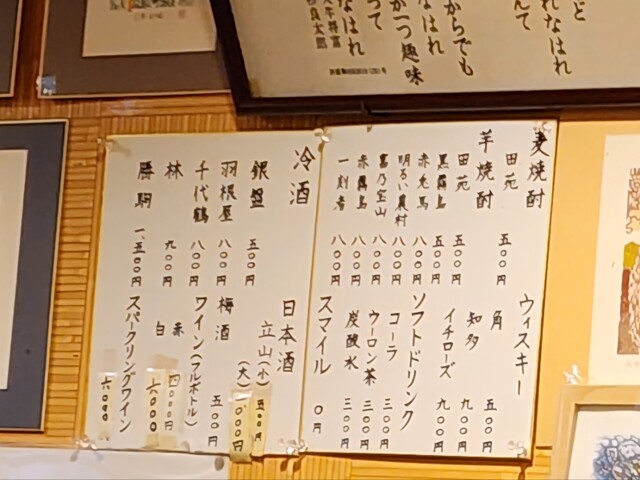 麦焼酎
田苑 五〇〇円
芋焼酎
田苑 五〇〇円
黒霧島 五〇〇円
赤兎馬 八〇〇円
明るい農村 八〇〇円
富乃宝山 八〇〇円
赤霧島 八〇〇円
一刻者 八〇〇円
ウィスキー
角 五〇〇円
知多 九〇〇円
イチローズ 九〇〇円
ソフトドリンク
コーラ 三〇〇円
ウーロン茶 三〇〇円
炭酸水 三〇〇円
スマイル 〇円
冷酒
銀盤 五〇〇円
羽根屋 八〇〇円
千代鶴 八〇〇円
林 九〇〇円
勝駒 一、五〇〇円
日本酒
立山(小) 五〇〇円
(大)
梅酒 五〇〇円
ワイン(フルボトル)
赤 四〇〇〇円
白 六〇〇〇
スパークリングワイン 六〇〇〇
からでも
なはれ
か一つ趣味
って
なはれ
れなはれ
んて
と